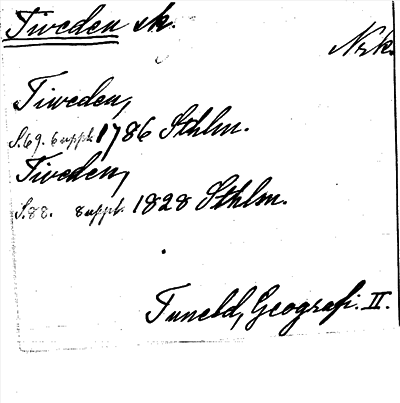 Tiveden sk.
Nrk.
Tiveden,
S. 69. 6 uppl. 1786 Sthlm.
Tiveden,
S. 88. 8 uppl. 1828 Sthlm.
Tuneld, Geografi. II.